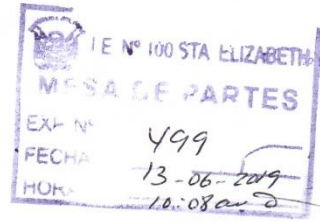 I.E Nº 100 STA ELIZABETH
MESA DE PARTES
EXP Nº 499
FECHA 13-06-2019
HORA 10:08 am